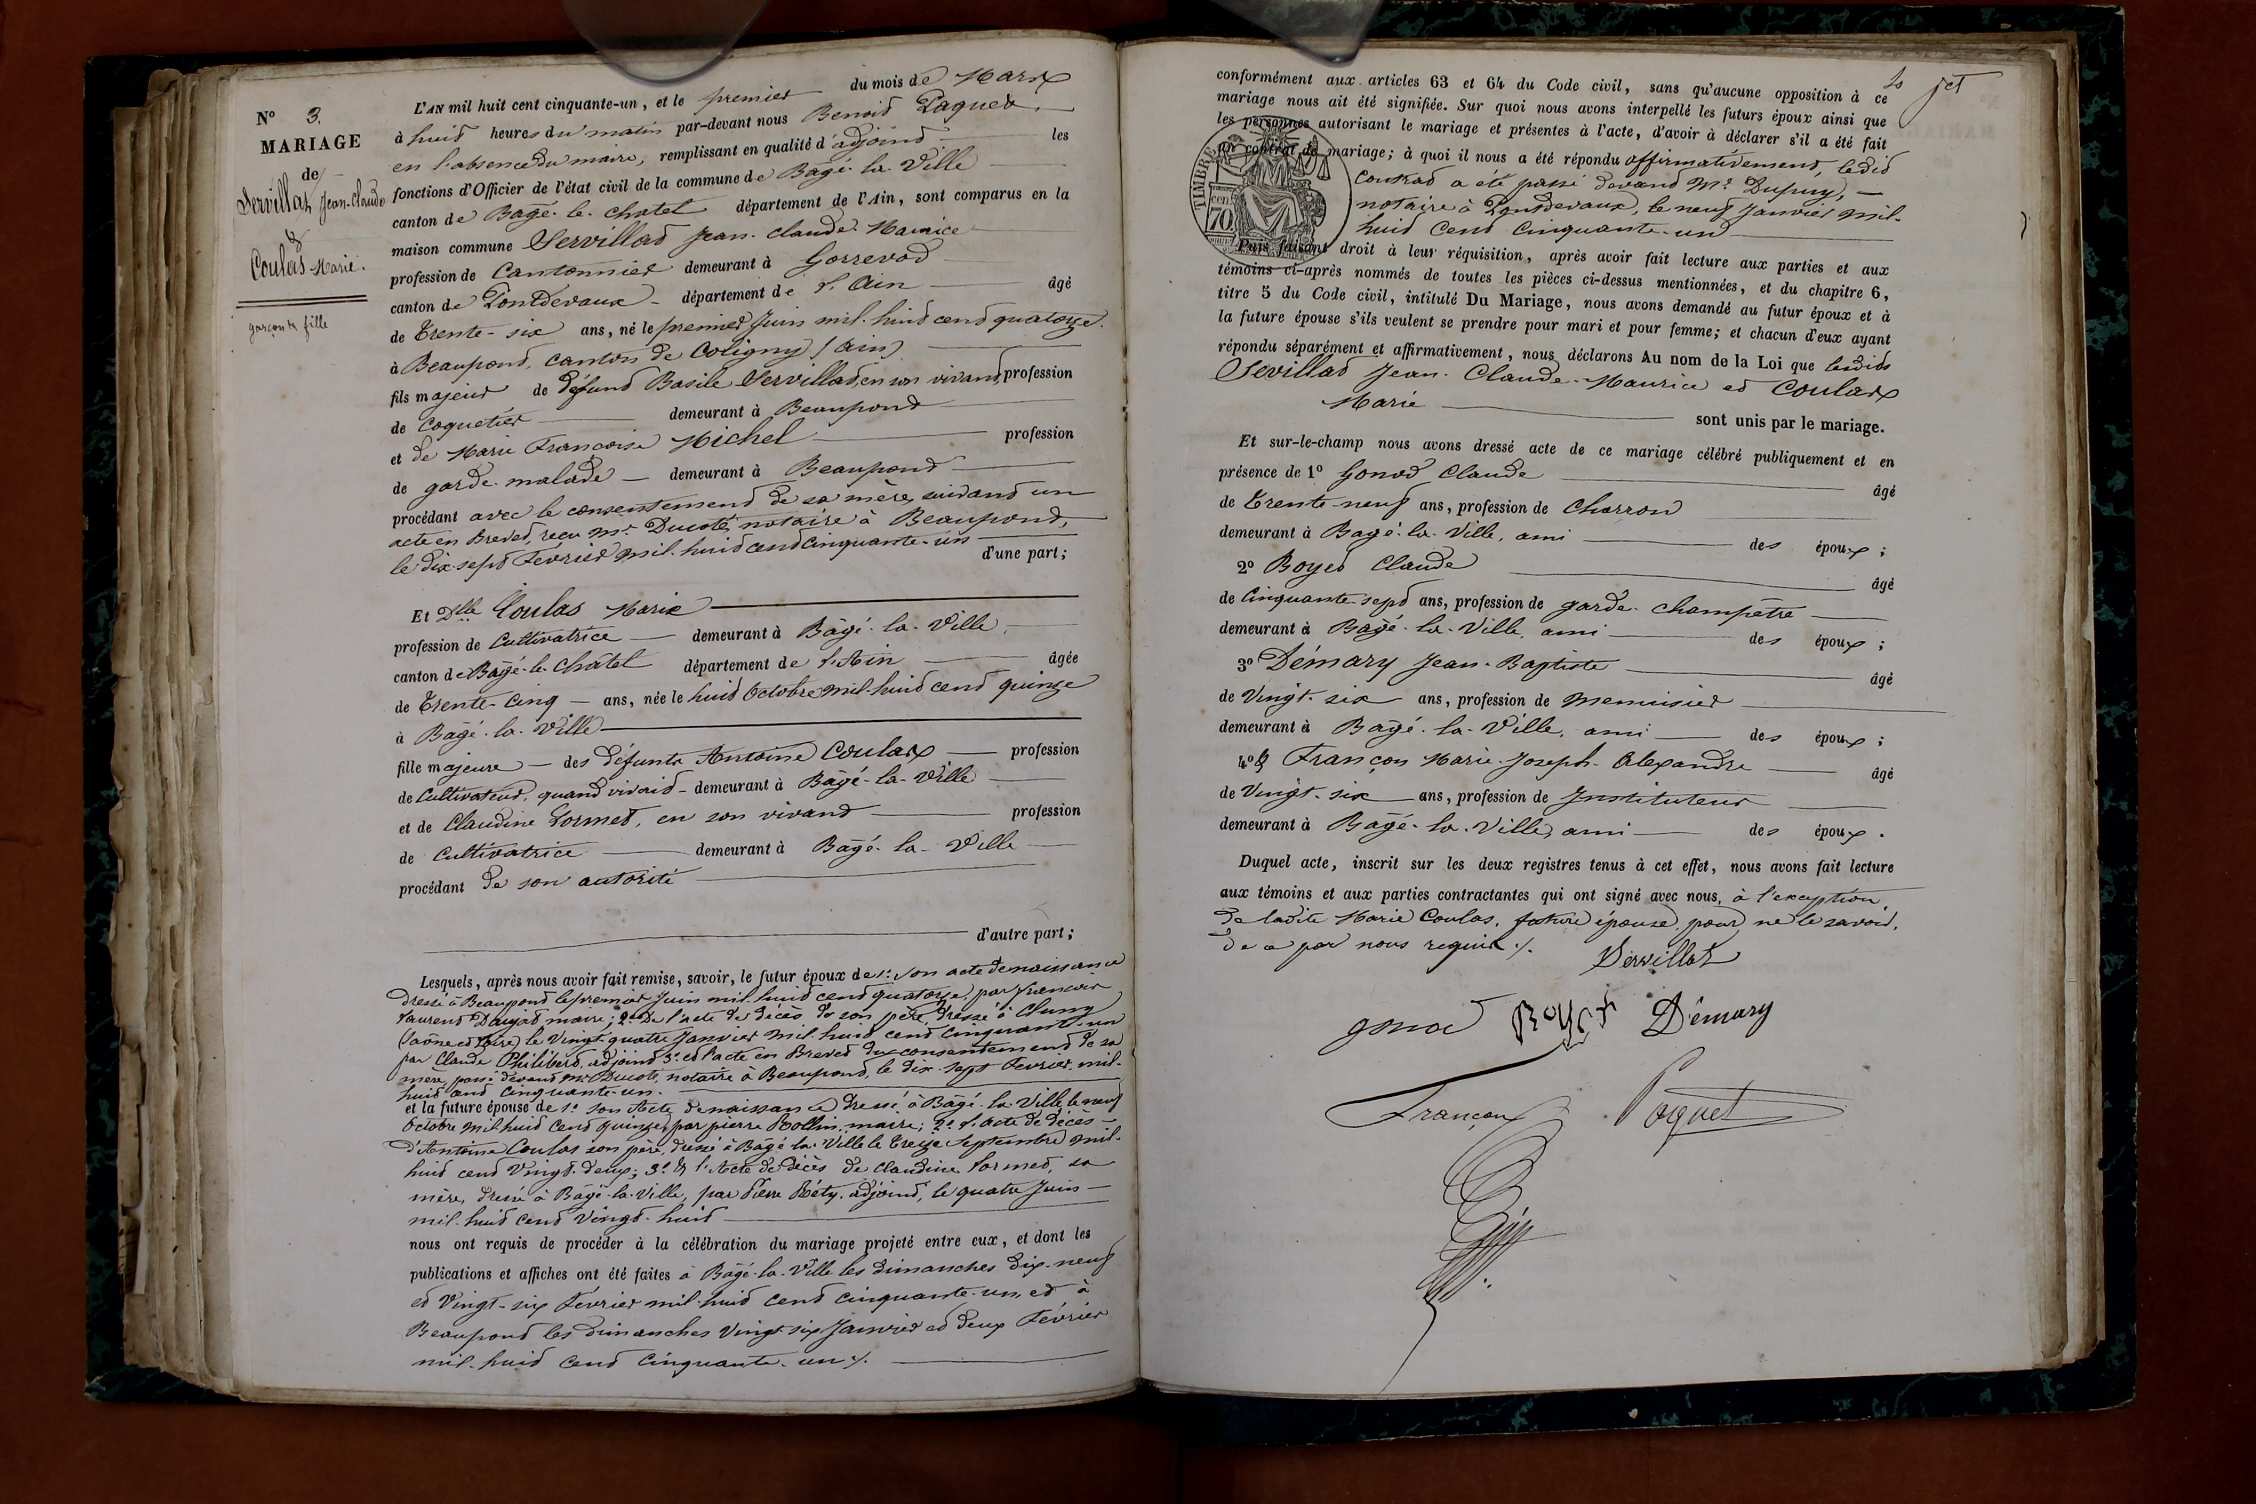 N° 3.
MARIAGE
de
Servillat Jean-Claude
&
Coulas Marie.
garçon & fille
L'AN mil huit cent cinquante-un, et le premier du mois de Mars
à huit heures du matin par-devant nous Benoit Paquet.
en l'absence du maire, remplissant en qualité d'adjoint les
fonctions d'Officier de l'état civil de la commune de Bâgé-la-Ville
canton de Bâgé-le-chatel département de l'Ain, sont comparus en la
maison commune Servillat Jean-Claude-Maurice
profession de Cantonnier demeurant à Gorrevod
canton de Pontdevaux département de l'Ain âgé
de Trente-six ans, né le premier Juin mil-huit cent quatorze
à Beaupont, canton de Coligny (Ain)
fils majeur de défunt Basile Servillat, en son vivant profession
de Coquetier demeurant à Beaupont
et de Marie Françoise Michel profession
de garde-malade demeurant à Beaupont
procédant avec le consentement de sa mère, suivant un
acte en Brevet, reçu Mr. Ducoté, notaire à Beaupont,
le dix-sept Fevrier mil-huit cent cinquante-un d'une part;
Et Dlle Coulas Marie
profession de Cultivatrice demeurant à Bâgé-la-Ville
canton de Bâgé-le-Châtel département de l'Ain âgée
de Trente-Cinq ans, née le huit Octobre mil-huit cent quinze
à Bâgé-la-Ville
fille majeure des défunts Antoine Coulas profession
de Cultivateur, quand vivait demeurant à Bâgé-la-Ville
et de Claudine Lormet, en son vivant profession
de Cultivatrice demeurant à Bâgé-la-Ville
procédant de son autorité
d'autre part;
Lesquels, après nous avoir fait remise, savoir, le futur époux de 1° son acte de naissance
dressé à Beaupont le premier Juin mil-huit cent quatorze, par francois
Laurent maire; 2° De l'acte de décès de son père dressé à Cluny
(Saône et Loire) le Vingt-quatre Janvier mil-huit cent cinquante-un
par Claude Philibert, adjoint 3° et l'acte en Brevet du consentement de sa
mère, passé devant Mr. Ducoté, notaire à Beaupont, le dix-sept Fevrier mil-
huit cent cinquante-un.
et la future épouse de 1° son Acte de naissance dressé à Bâgé-la-Ville le neuf
Octobre mil huit cent quinze, par pierre Rollin, maire; 2° l'acte de décès
d'Antoine Coulas son père, dressé à Bâgé-la-Ville le treize Septembre mil-
huit cent Vingt-deux; 3° & l'Acte de décès de Claudine Lormet, sa
mère, dressé à Bâgé-la-Ville, par Pierre Réty, adjoint, le quatre Juin
mil-huit cent Vingt-huit
nous ont requis de procéder à la célébration du mariage projeté entre eux, et dont les
publications et affiches ont été faites à Bâgé-la-Ville les dimanches dix-neuf
et Vingt-six Fevrier mil-huit cent cinquante-un, et à
Beaupont les dimanches Vingt-six Janvier et deux Février
mil-huit cent Cinquante-un
conformément aux articles 63 et 64 du Code civil, sans qu'aucune opposition à ce
mariage nous ait été signifiée. Sur quoi nous avons interpellé les futurs époux ainsi que
les personnes autorisant le mariage et présentes à l'acte, d'avoir à déclarer s'il a été fait
un contrat de mariage; à quoi il nous a été répondu affirmativement, ledit
contrat a été passé devant Mr. Dupuy,
notaire à Pontdevaux, le neuf Janvier mil-
huit cent Cinquante-un
TIMBRE
70
Puis, faisant droit à leur réquisition, après avoir fait lecture aux parties et aux
témoins ci-après nommés de toutes les pièces ci-dessus mentionnées, et du chapitre 6,
titre 5 du Code civil, intitulé Du Mariage, nous avons demandé au futur époux et à
la future épouse s'ils veulent se prendre pour mari et pour femme; et chacun d'eux ayant
répondu séparément et affirmativement, nous déclarons Au nom de la Loi que lesdits
Sevillat Jean-Claude-Maurice et Coulas
Marie sont unis par le mariage.
Et sur-le-champ nous avons dressé acte de ce mariage célébré publiquement et en
présence de 1° Gonod Claude âgé
de Trente-neuf ans, profession de Charron
demeurant à Bagé-la-Ville, ami des époux;
2° Boyer Claude âgé
de Cinquante-sept ans, profession de garde-champêtre
demeurant à Bâgé-la-Ville, ami des époux;
3° Démary Jean-Baptiste âgé
de Vingt-six ans, profession de menuisier
demeurant à Bâgé-la-Ville, ami des époux;
4° & Françon Marie-Joseph-Alexandre âgé
de Vingt-six ans, profession de Instituteur
demeurant à Bâgé-la-Ville, ami des époux.
Duquel acte, inscrit sur les deux registres tenus à cet effet, nous avons fait lecture
aux témoins et aux parties contractantes qui ont signé avec nous, à l'exception
de ladite Marie Coulas, future épouse, pour ne le savoir,
de ce par nous requise
Servillat
gonod Boyer Démary
Françon Paquet